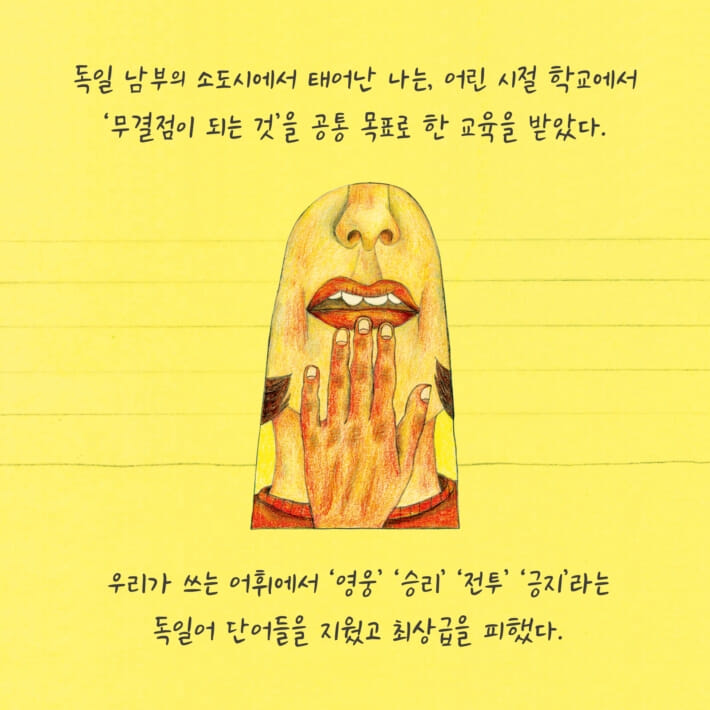 독일 남부의 소도시에서 태어난 나는, 어린 시절 학교에서
‘무결점이 되는 것’을 공통 목표로 한 교육을 받았다.
우리가 쓰는 어휘에서 ‘영웅’ ‘승리’ ‘전투’ ‘긍지’라는
독일어 단어들을 지웠고 최상급을 피했다.